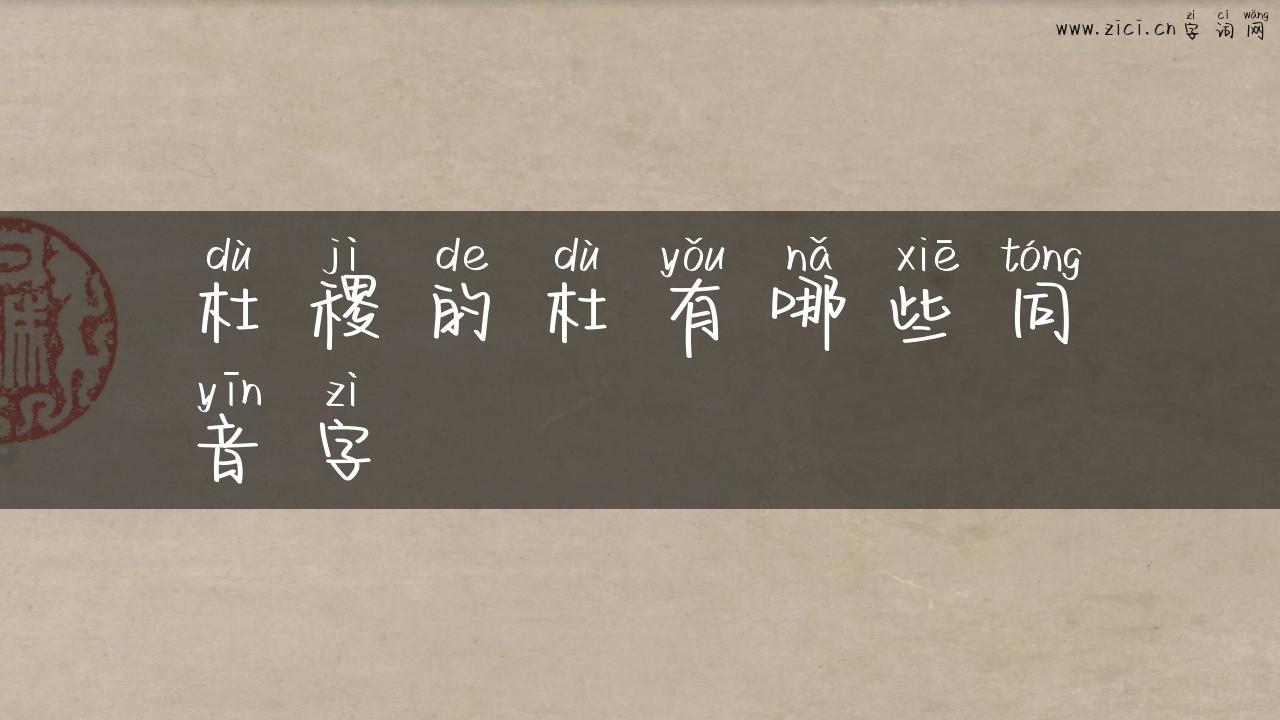 zì cí wǎng
www.zici.cn 字词网
dù jì de dù yǒu nǎ xiē tóng
杜稷的杜有哪些同
yīn zì
音字